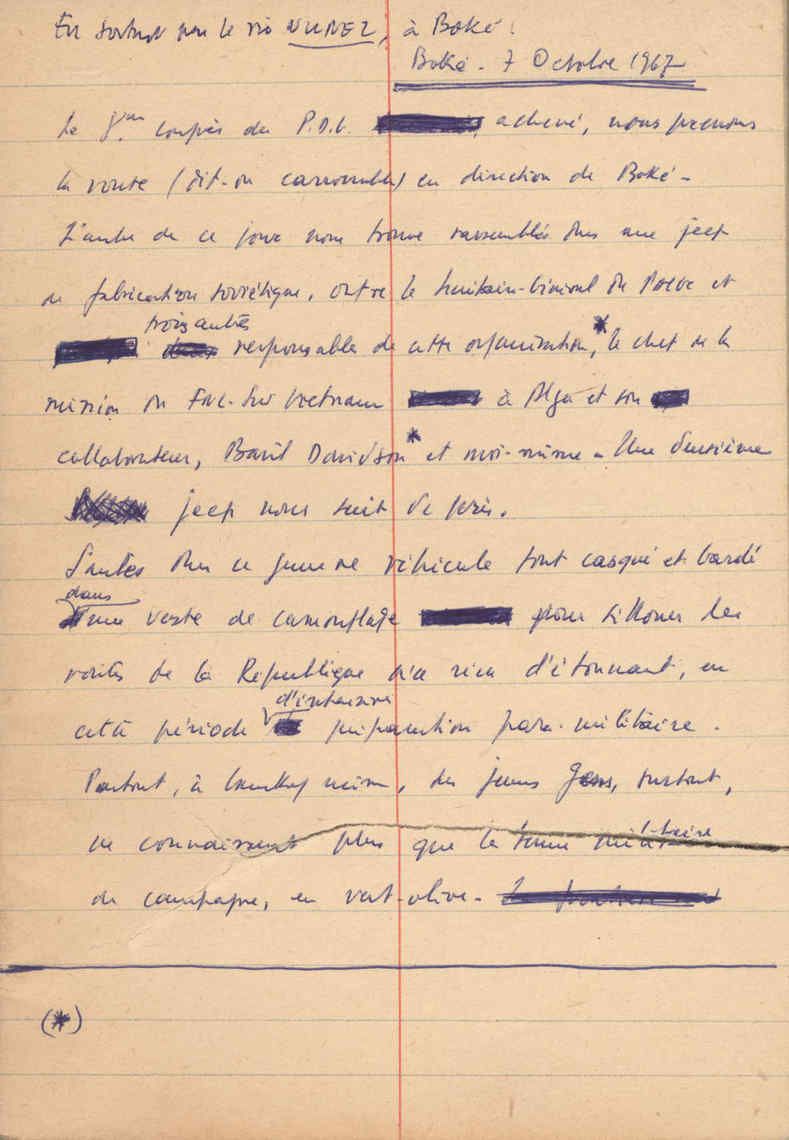 En sortant par le rio NUNEZ, à Boké.
Boké - 7 Octobre 1967
Le 8ème congrès du P.D.G. achevé, nous prenons
la route (dit-on carrossable) en direction de Boké -
L'aube de ce jour nous trouve rassemblés dans une jeep
de fabrication soviétique, outre le et
trois autres
responsables de cette organisation,* le chef de la
mission du Sud Vietnam à Alger et son
collaborateur, Basil Davidson* et moi-même - Une deuxième
jeep nous suit de près.
Sauter dans ce genre de véhicule tout casqué et bardé
dans
une veste de camouflage pour sillonner les
routes de la République n'a rien d'étonnant, en
d'intensive
cette période préparation para-militaire.
Partout, à même, des jeunes gens, surtout,
ne connaissent plus que la tenue militaire
de campagne, en vert-olive -
(*)